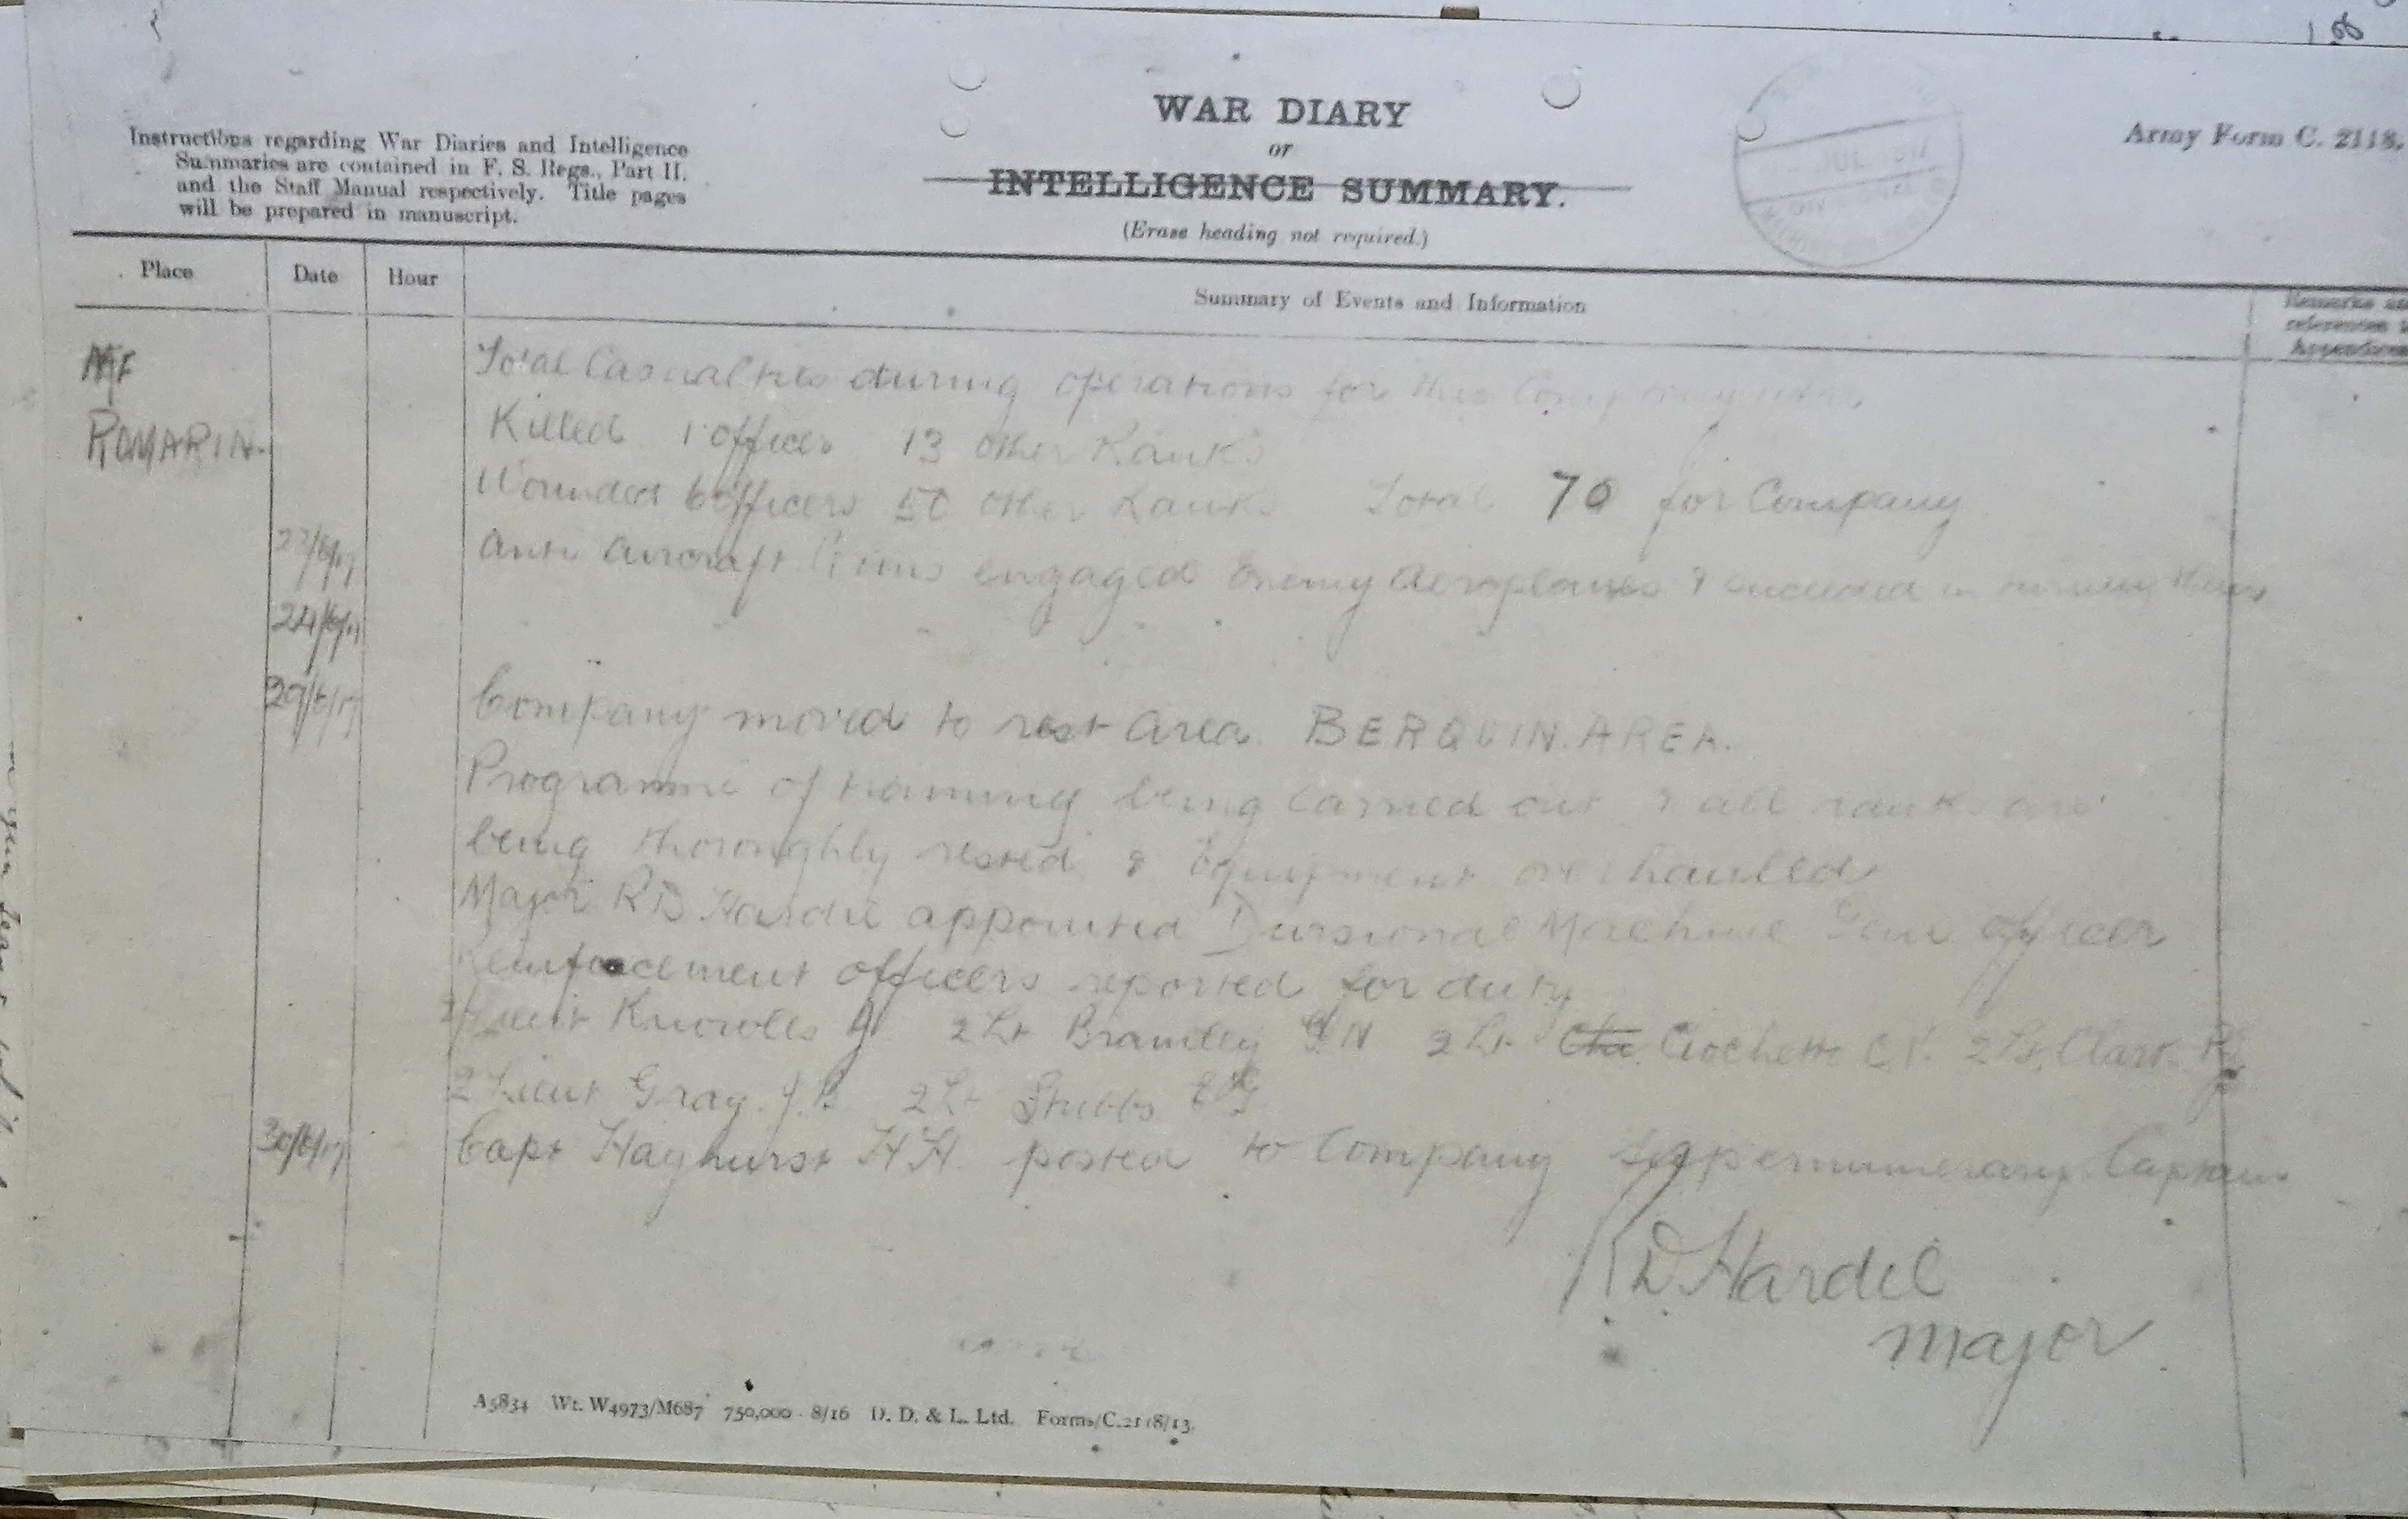 188
WAR DIARY
or
INTELLIGENCE SUMMARY.
(Erase heading not required.)
Army Form C. 2118.
Instructions regarding War Diaries and Intelligence
Summaries are contained in F. S. Regs., Part II.
and the Staff Manual respectively. Title pages
will be prepared in manuscript.
JUL 1917
Place Date Hour Summary of Events and Information Remarks and
references to
Appendices
ROMARIN.
Total Casualties during operations for this Company were
Killed 1 officer 13 other Ranks
Wounded 6 officers 50 other Ranks Total 70 for Company
Anti Aircraft Guns engaged Enemy Aeroplanes & succeeded in
24/6/17
29/6/17 Company moved to rest area BERQUIN. AREA.
Programme of training being carried out & all ranks are
being thoroughly rested & Equipment overhauled
Major RD Hardie appointed Divisional Machine Gun officer
Reinforcement officers reported for duty
2/Lieut Knowles J 2Lt Bramley GN 2Lt Crochett C 2Lt. Clark
2Lieut Gray. J.B 2Lt Stubbs
30/6/17 Capt Hayhurst H.H. posted to Company Suppernumerary Captain
RD Hardie
Major
A5834 Wt. W4973/M687 750,000 8/16 D. D. & L. Ltd. Forms/C.2118/13.